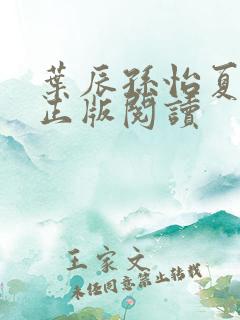 葉辰孫怡夏
正版閱讀
王家文
未經同意禁止轉載